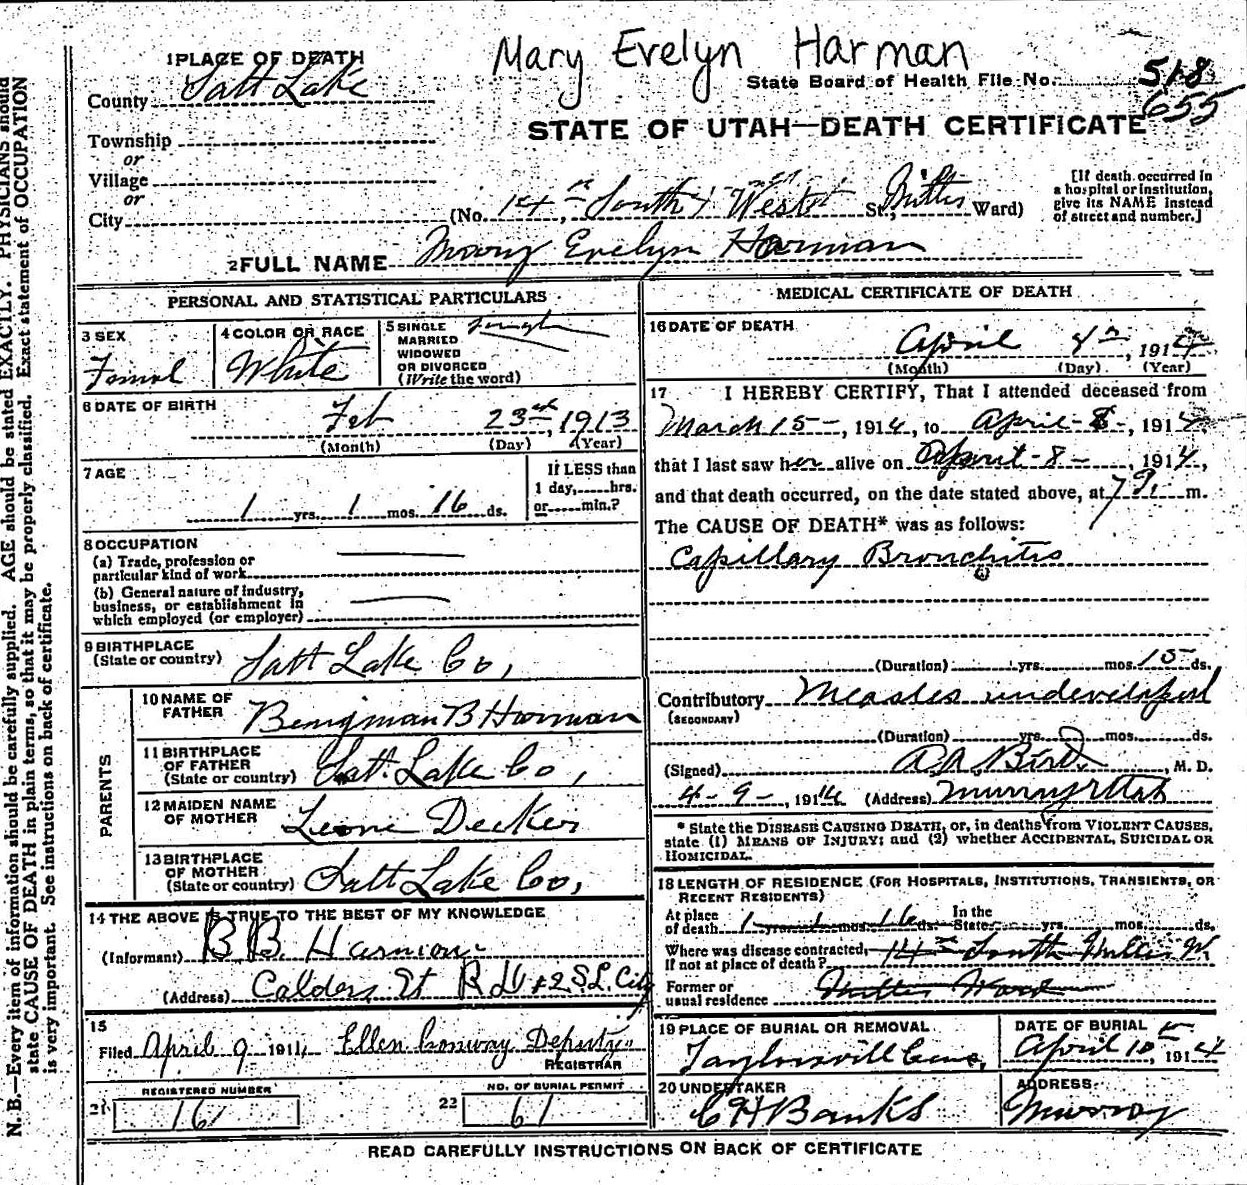 Mary Evelyn Harman
1 PLACE OF DEATH
County Salt Lake
State Board of Health File No. 518
655
STATE OF UTAH—DEATH CERTIFICATE
Township
or
Village
or
City
(No. 14th South & West St.; Ward)
[If death occurred in a hospital or institution, give its NAME instead of street and number.]
2 FULL NAME Mary Evelyn Harman
PERSONAL AND STATISTICAL PARTICULARS
3 SEX
Femal
4 COLOR OR RACE
White
5 SINGLE
MARRIED
WIDOWED
OR DIVORCED
(Write the word)
Single
6 DATE OF BIRTH
Feb 23rd, 1913
(Month) (Day) (Year)
7 AGE
1 yrs. 1 mos. 16 ds.
If LESS than
1 day, hrs.
or min.?
8 OCCUPATION
(a) Trade, profession or
particular kind of work
(b) General nature of industry,
business, or establishment in
which employed (or employer)
9 BIRTHPLACE
(State or country) Salt Lake Co,
PARENTS
10 NAME OF
FATHER Bengman B Harman
11 BIRTHPLACE
OF FATHER
(State or country) Salt Lake Co,
12 MAIDEN NAME
OF MOTHER Leoni Decker
13 BIRTHPLACE
OF MOTHER
(State or country) Salt Lake Co,
14 THE ABOVE IS TRUE TO THE BEST OF MY KNOWLEDGE
(Informant) B B Harmon
(Address) Calders St R D #2 S L City
15
Filed April 9 1914 Ellen Conway Deputy
REGISTRAR
21 REGISTERED NUMBER
16
22 NO. OF BURIAL PERMIT
61
MEDICAL CERTIFICATE OF DEATH
16 DATE OF DEATH
April 8th, 1914
(Month) (Day) (Year)
17 I HEREBY CERTIFY, That I attended deceased from
March 15-, 1914, to April-8-, 1914,
that I last saw her alive on April-8-, 1914,
and that death occurred, on the date stated above, at 7 P. m.
The CAUSE OF DEATH* was as follows:
Capillary Bronchitis
(Duration) yrs. mos. 15 ds.
Contributory Measles undeveloped
(SECONDARY)
(Duration) yrs. mos. ds.
(Signed) Bird, M. D.
4-9-, 1914 (Address) Murray Utah
* State the DISEASE CAUSING DEATH, or, in deaths from VIOLENT CAUSES,
state (1) MEANS OF INJURY; and (2) whether ACCIDENTAL, SUICIDAL OR
HOMICIDAL.
18 LENGTH OF RESIDENCE (FOR HOSPITALS, INSTITUTIONS, TRANSIENTS, OR
RECENT RESIDENTS)
At place
of death 1 yrs. 1 mos. 16 ds. In the
State yrs. mos. ds.
Where was disease contracted,
if not at place of death? 14th South W.
Former or
usual residence Ward
19 PLACE OF BURIAL OR REMOVAL
Taylorsvill Cem.
DATE OF BURIAL
April 10th, 1914
20 UNDERTAKER
C H Banks
ADDRESS
Murray
READ CAREFULLY INSTRUCTIONS ON BACK OF CERTIFICATE
N. B.—Every item of information should be carefully supplied. AGE should be stated EXACTLY. PHYSICIANS should
state CAUSE OF DEATH in plain terms, so that it may be properly classified. Exact statement of OCCUPATION
is very important. See instructions on back of certificate.